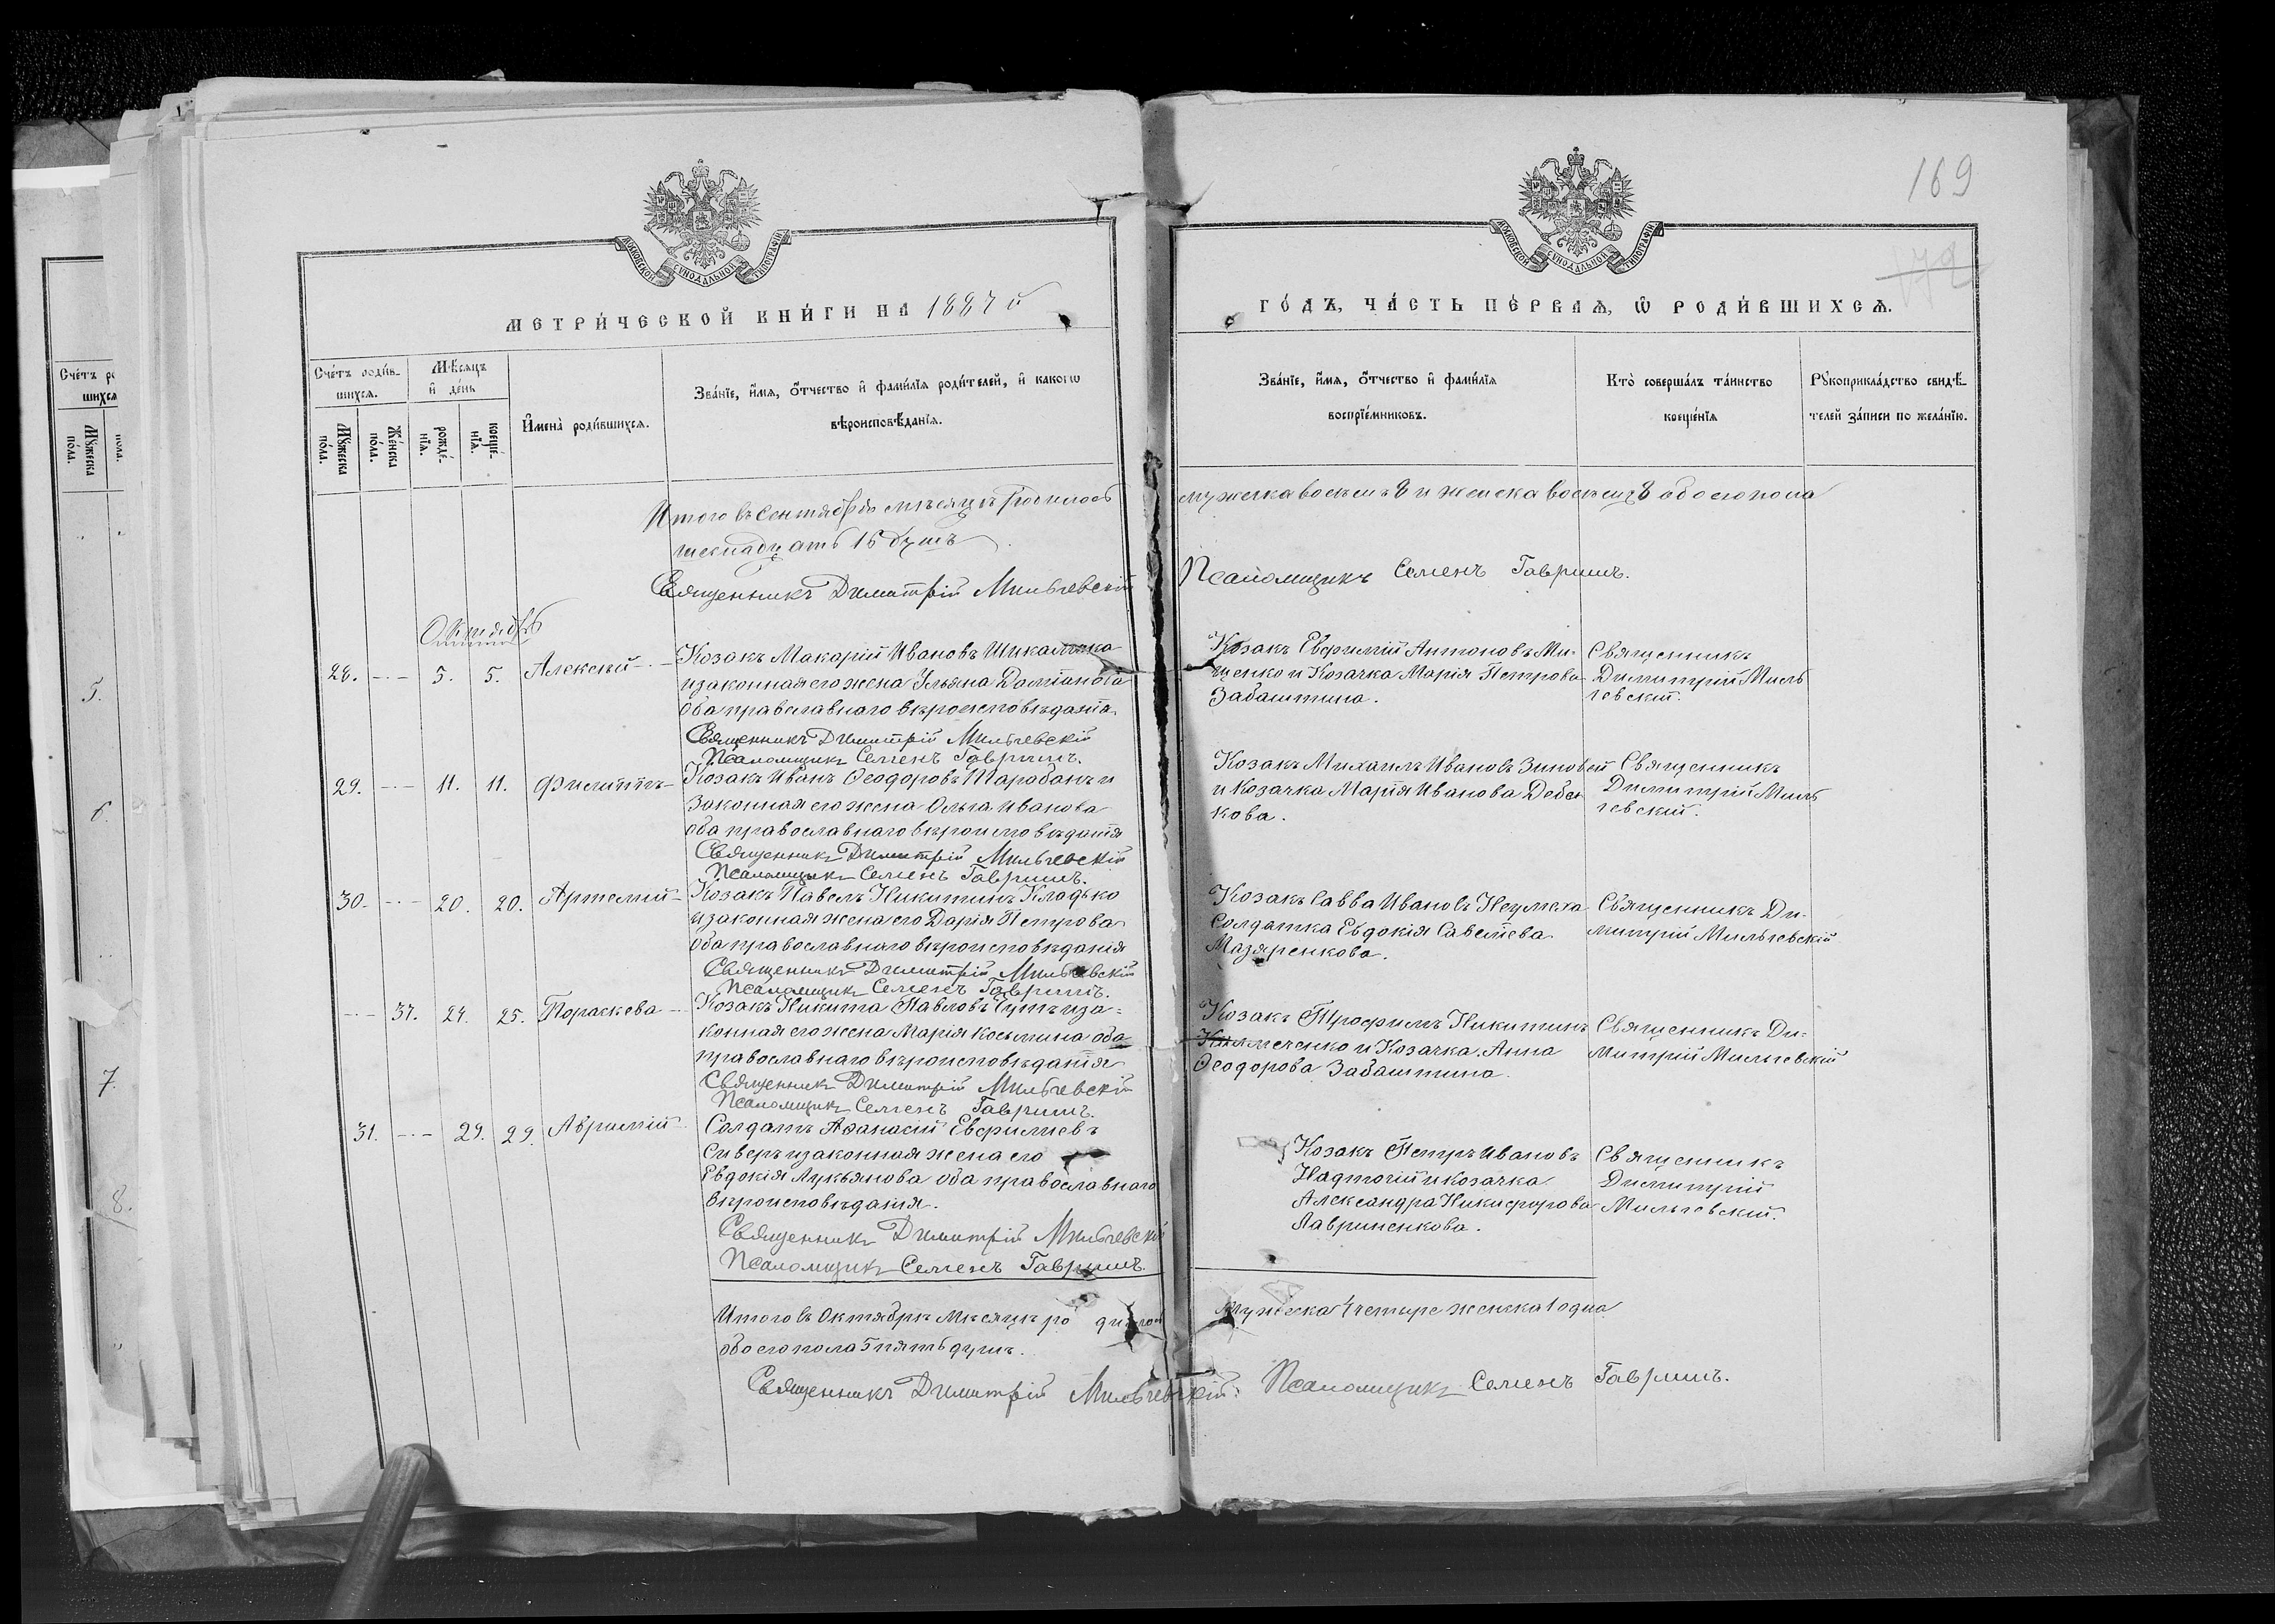 169
172
МОСКОВСКОЙ СУНОДАЛЬНОЙ ТИПОГРАФІИ
МОСКОВСКОЙ СУНОДАЛЬНОЙ ТИПОГРАФІИ
МЕТРИ́ЧЕСКОЙ КНИ́ГИ НА 1887 й
ГО́ДЪ, ЧА́СТЬ ПЕ́РВАѦ, Ѡ҆ РОДИ́ВШИХСѦ.
Сче́тъ роди́в-
шихсѧ.
Мѣ́сѧцъ
и҆ де́нь
Мꙋ́жеска по́ла.
Же́нска по́ла.
рожде́-нїѧ.
креще́-нїѧ.
И҆мена̀ роди́вшихсѧ.
Зва́нїе, и҆́мѧ, ѻ҆́тчество и҆ фами́лїѧ роди́телей, и҆ какогѡ
вѣроисповѣ́данїѧ.
Зва́нїе, и҆́мѧ, ѻ҆́тчество и҆ фами́лїѧ
воспрїе́мниковъ.
Кто̀ соверша́лъ та́инство
креще́нїѧ
Рꙋкоприкла́дство свидѣ́-
телей за́писи по жела́нїю.
Итого въ Сентябрѣ мѣсяцѣ родилось
мужеска восемь 8 и женска восемь 8 обоего пола
шеснадцать 16 душъ
Священникъ Димитрій Мильчевскій
Псаломщикъ Семенъ Гавришъ.
Октябрь
28. 5. 5. Алексѣй Козакъ Макарій Ивановъ
и законная его жена Ульяна Даміанова
оба православнаго вѣроисповѣданія.
Священникъ Димитрій Мильчевскій
Псаломщикъ Семенъ Гавришъ.
Козакъ Евфимій Антоновъ Ми-
щенко и Козачка Марія Петрова
Забаштина.
Священникъ
Димитрій Миль
чевскій.
29. 11. 11. Филиппъ Козакъ Иванъ Ѳеодоровъ Тарабанъ и
законная его жена Ольга Иванова
оба православнаго вѣроисповѣданія
Священникъ Димитрій Мильчевскій
Псаломщикъ Семенъ Гавришъ.
Козакъ Михаилъ Ивановъ Зиновей
и Козачка Марія Иванова
кова.
Священникъ
Димитрій Миль
чевскій.
30. 20. 20. Артемій Козакъ Павелъ Никитинъ Кладько
и законная жена его Дарія Петрова
оба православнаго вѣроисповѣданія
Священникъ Димитрій Мильчевскій
Псаломщикъ Семенъ Гавришъ.
Козакъ Савва Ивановъ
Солдатка Евдокія Саветева
Мазяренкова.
Священникъ Ди-
митрій Мильчевскій
37. 24. 25. Параскева Козакъ Никита Павловъ и за-
конная его жена Марія Косьмина оба
православнаго вѣроисповѣданія
Священникъ Димитрій Мильчевскій
Псаломщикъ Семенъ Гавришъ.
Козакъ Трофимъ Никитинъ
и Козачка Анна
Ѳеодорова Забаштина.
Священникъ Ди-
митрій Мильчевскій
31. 29. 29. Аврамій Солдатъ Аѳанасій Евфиміевъ
Сиверъ и законная жена его
Евдокія Лукьянова оба православнаго
вѣроисповѣданія.
Священникъ Димитрій Мильчевскій
Псаломщикъ Семенъ Гавришъ
Козакъ Петръ Ивановъ
Надточій и козачка
Александра Никифорова
Лавриненкова.
Священникъ
Димитрій
Мильчевскій.
Итого въ Октябрѣ мѣсяцѣ ро дилось
мужеска 4 четыре женска 1 одна
обоего пола 5 пять душъ.
Священникъ Димитрій Мильчевскій.
Псаломщикъ Семенъ Гавришъ.
Сче́тъ ро
шихсѧ
Мꙋ́жеска по́ла.
5.
6.
7.
8.